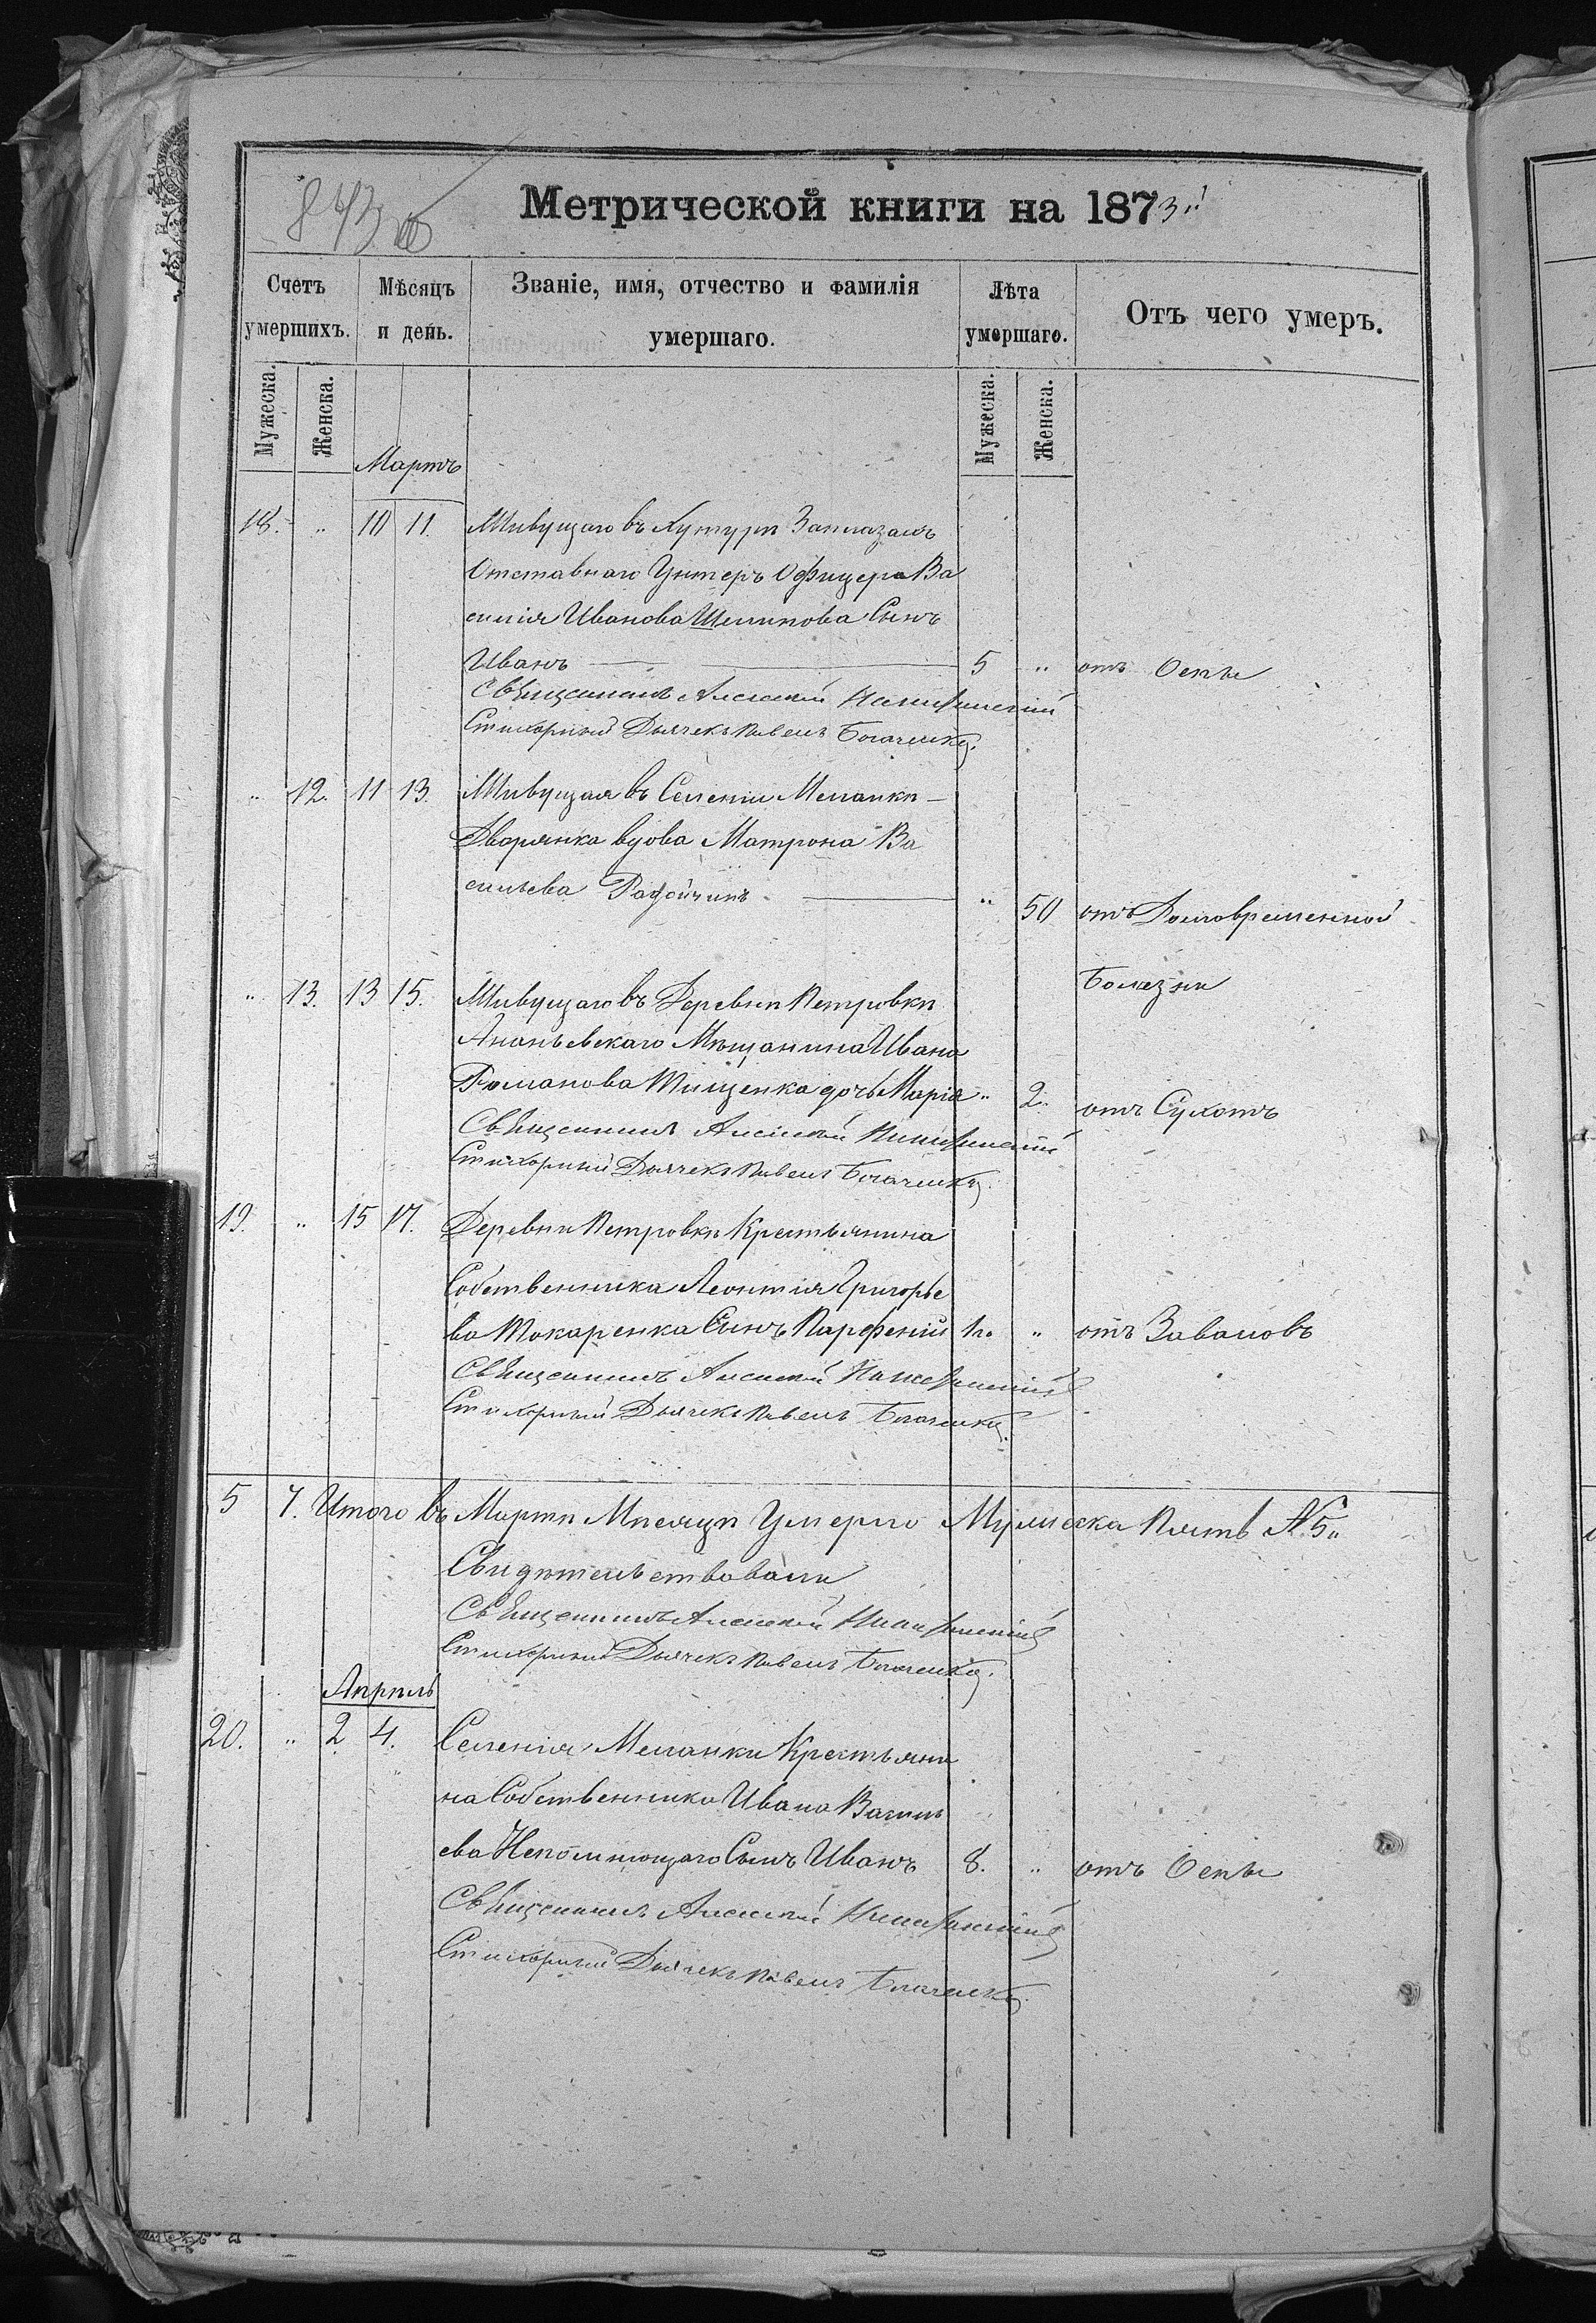 843 об
Метрической книги на 1873й
Счетъ умершихъ.
Мѣсяцъ и день.
Званіе, имя, отчество и фамилія умершаго.
Лѣта умершаго.
Отъ чего умеръ.
Мужеска.
Женска.
Мужеска.
Женска.
Мартъ
18. " 10 11. Живущаго въ Хуторѣ
Отставнаго Унтеръ Офицера Ва
силія Иванова Шелипова Сынъ
Иванъ 5 " отъ Оспы
Священникъ Алексѣй
Стихарный Дьячекъ Павелъ
" 12. 11 13. Живущая въ Селеніи Меланки
Дворянка вдова Матрона Ва
сильева " 50 отъ Долговременной
Болезни
" 13. 13 15. Живущаго въ Деревнѣ Петровкѣ
Ананьевскаго Мѣщанина Ивана
Романова Тищенка дочь Марія " 2. отъ Сухотъ
Священникъ Алексѣй
Стихарный Дьячекъ Павелъ
19. " 15 17. Деревни Петровки Крестьянина
Собственника Леонтія Григорье
ва Токаренка Сынъ Парфеній 1. " отъ Заваловъ
Священникъ Алексѣй
Стихарный Дьячекъ Павелъ
5 7. Итого въ Мартѣ Мѣсяцѣ Умерло Мужеска Пять № 5"
Свидѣтельствовали
Священникъ Алексѣй
Стихарный Дьячекъ Павелъ
Апрѣль
20. " 2 4. Селенія Меланки Крестьяни
на Собственника Ивана Василь
ева Непомнющаго Сынъ Иванъ 8. " отъ Оспы
Священникъ Алексѣй
Стихарный Дьячекъ Павелъ